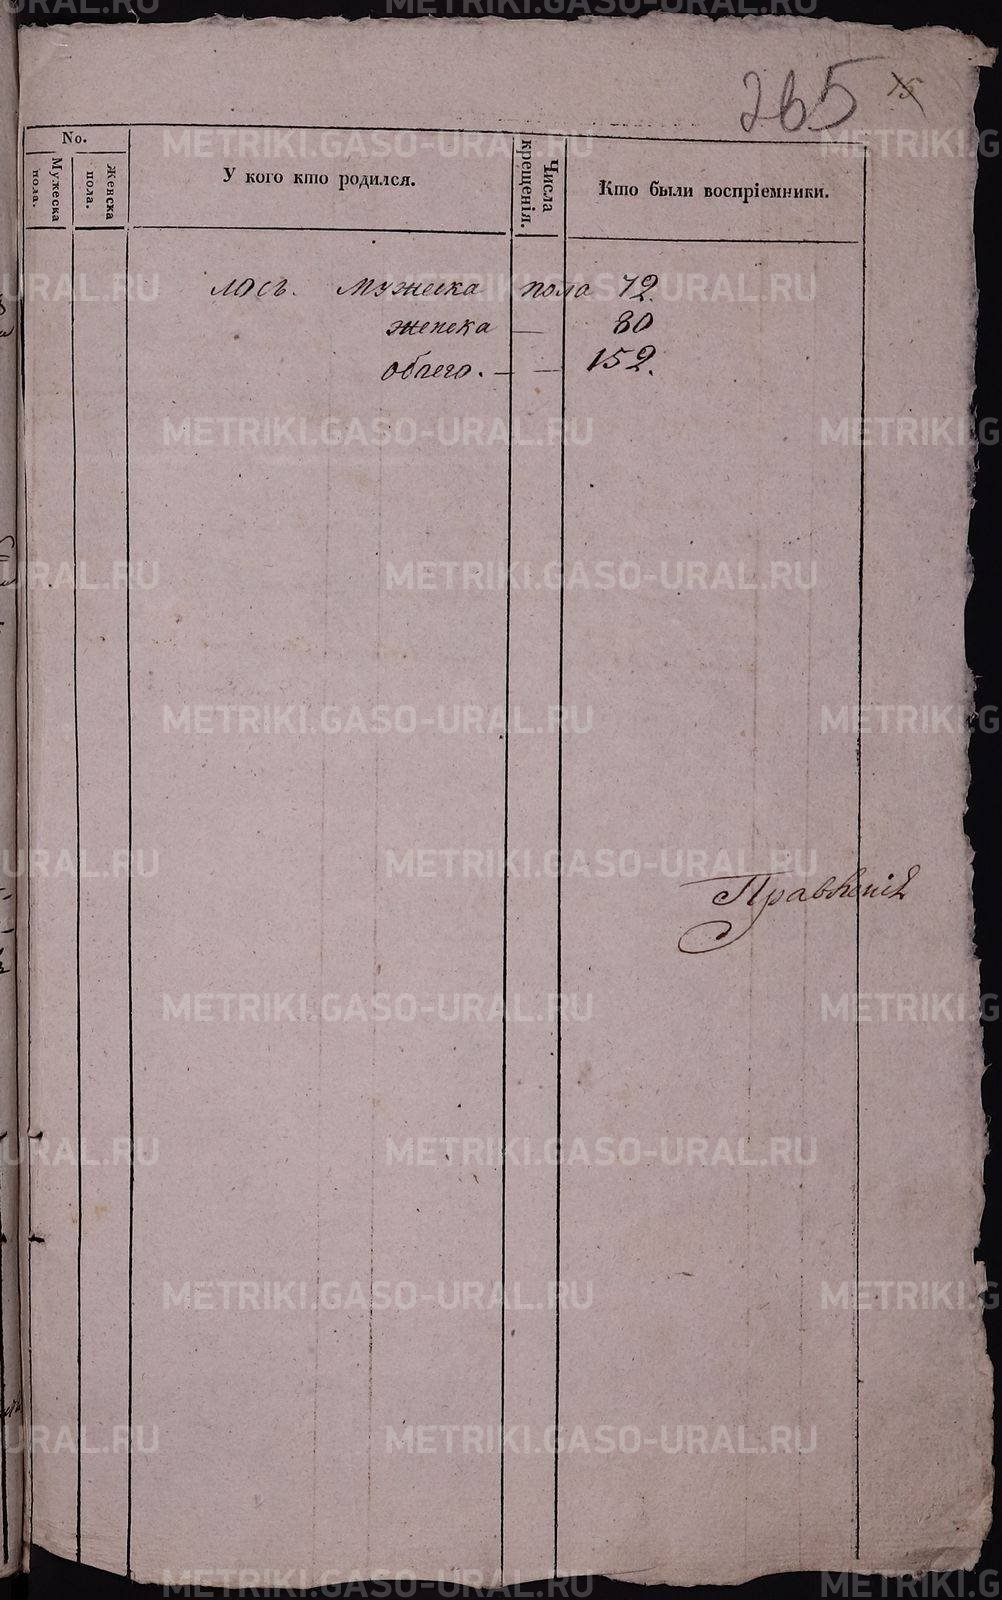 265 15
No.
Мужеска пола.
Женска пола.
У кого кто родился.
Числа крещенія.
Кто были воспріемники.
лось. мужеска пола 72.
женска — 80
обоего. — — 152.
METRIKI.GASO-URAL.RU